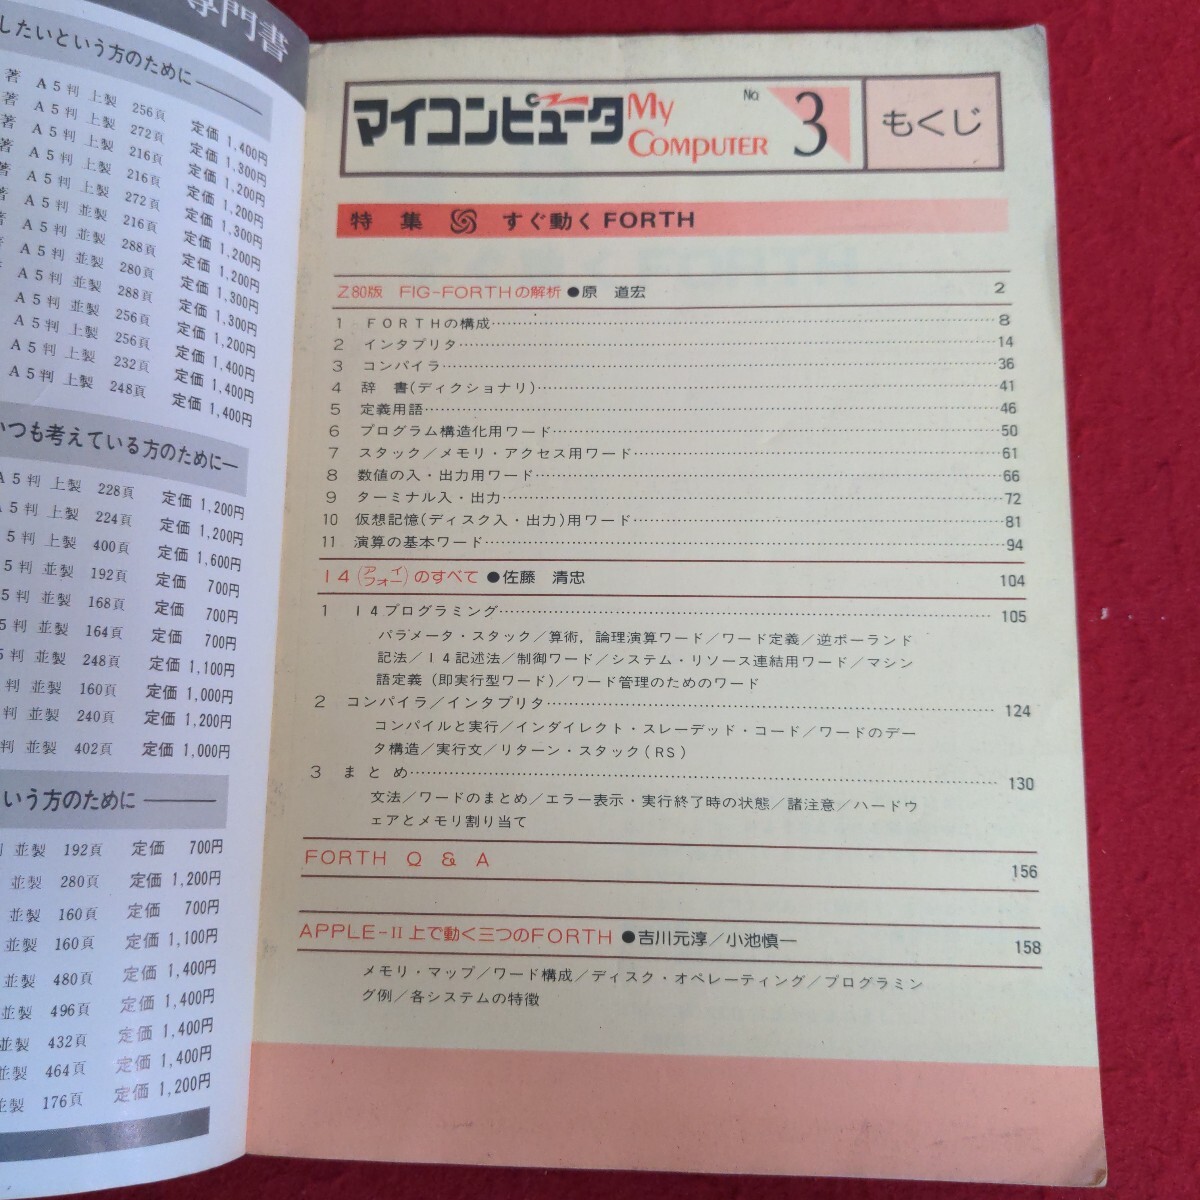 専門書
したいという方のために
著 A5判 上製 256頁 定価 1,400円
著 A5判 上製 272頁 定価 1,300円
著 A5判 上製 216頁 定価 1,200円
著 A5判 上製 216頁 定価 1,200円
著 A5判 上製 272頁 定価 1,300円
著 A5判 並製 216頁 定価 1,200円
A5判 並製 288頁 定価 1,200円
A5判 並製 280頁 定価 1,300円
A5判 並製 288頁 定価 1,300円
A5判 並製 256頁 定価 1,200円
A5判 上製 256頁 定価 1,400円
A5判 上製 232頁 定価 1,400円
A5判 上製 248頁 定価 1,400円
いつも考えている方のために
A5判 上製 228頁 定価 1,200円
A5判 上製 224頁 定価 1,200円
5判 上製 400頁 定価 1,600円
5判 並製 192頁 定価 700円
5判 並製 168頁 定価 700円
5判 並製 164頁 定価 700円
5判 並製 248頁 定価 1,100円
判 並製 160頁 定価 1,000円
判 並製 240頁 定価 1,200円
判 並製 402頁 定価 1,000円
いう方のために
並製 192頁 定価 700円
並製 280頁 定価 1,200円
並製 160頁 定価 700円
並製 160頁 定価 1,100円
並製 480頁 定価 1,400円
並製 496頁 定価 1,400円
並製 432頁 定価 1,400円
並製 464頁 定価 1,400円
並製 176頁 定価 1,200円
マイコンピュータ My COMPUTER No. 3 もくじ
特集 すぐ動くFORTH
Z80版 FIG-FORTHの解析 ●原 道宏 2
1 FORTHの構成 8
2 インタプリタ 14
3 コンパイラ 36
4 辞 書(ディクショナリ) 41
5 定義用語 46
6 プログラム構造化用ワード 50
7 スタック/メモリ・アクセス用ワード 61
8 数値の入・出力用ワード 66
9 ターミナル入・出力 72
10 仮想記憶(ディスク入・出力)用ワード 81
11 演算の基本ワード 94
I4(アイフォー)のすべて ●佐藤 清忠 104
1 I4プログラミング 105
パラメータ・スタック/算術,論理演算ワード/ワード定義/逆ポーランド
記法/I4記述法/制御ワード/システム・リソース連結用ワード/マシン
語定義(即実行型ワード)/ワード管理のためのワード
2 コンパイラ/インタプリタ 124
コンパイルと実行/インダイレクト・スレーデッド・コード/ワードのデー
タ構造/実行文/リターン・スタック(RS)
3 まとめ 130
文法/ワードのまとめ/エラー表示・実行終了時の状態/諸注意/ハードウ
ェアとメモリ割り当て
FORTH Q & A 156
APPLE-II上で動く三つのFORTH ●吉川元淳/小池慎一 158
メモリ・マップ/ワード構成/ディスク・オペレーティング/プログラミン
グ例/各システムの特徴